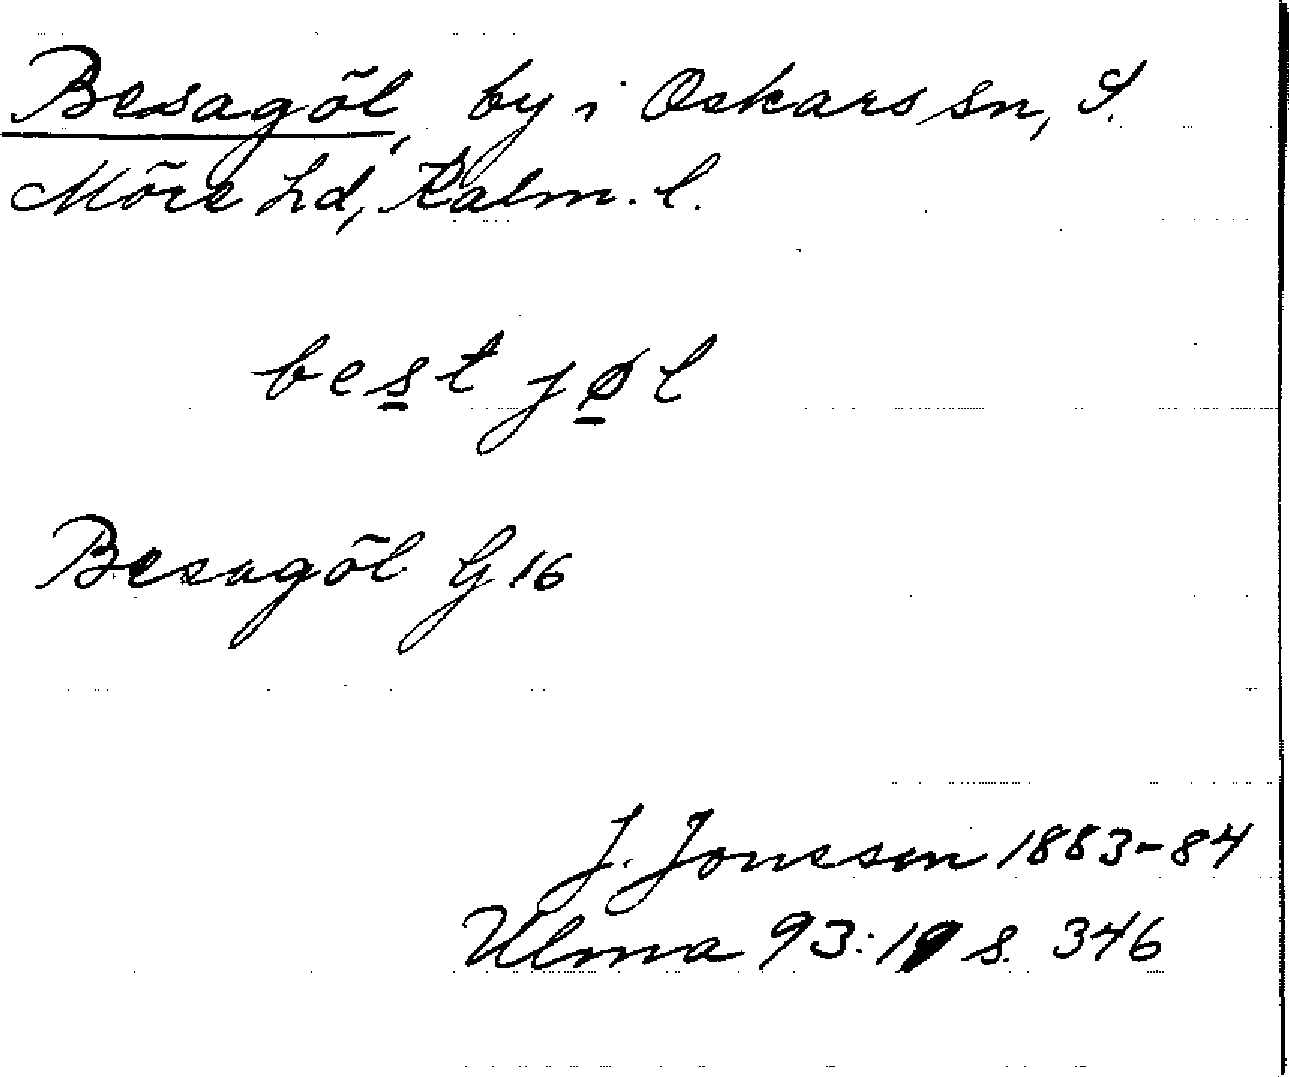 Besagöl, by i Oskars sn, S.
Möre hd, Kalm. l.
best jøl
Besagöl G 16
J. Jonsson 1883-84
Ulma 93: s. 346